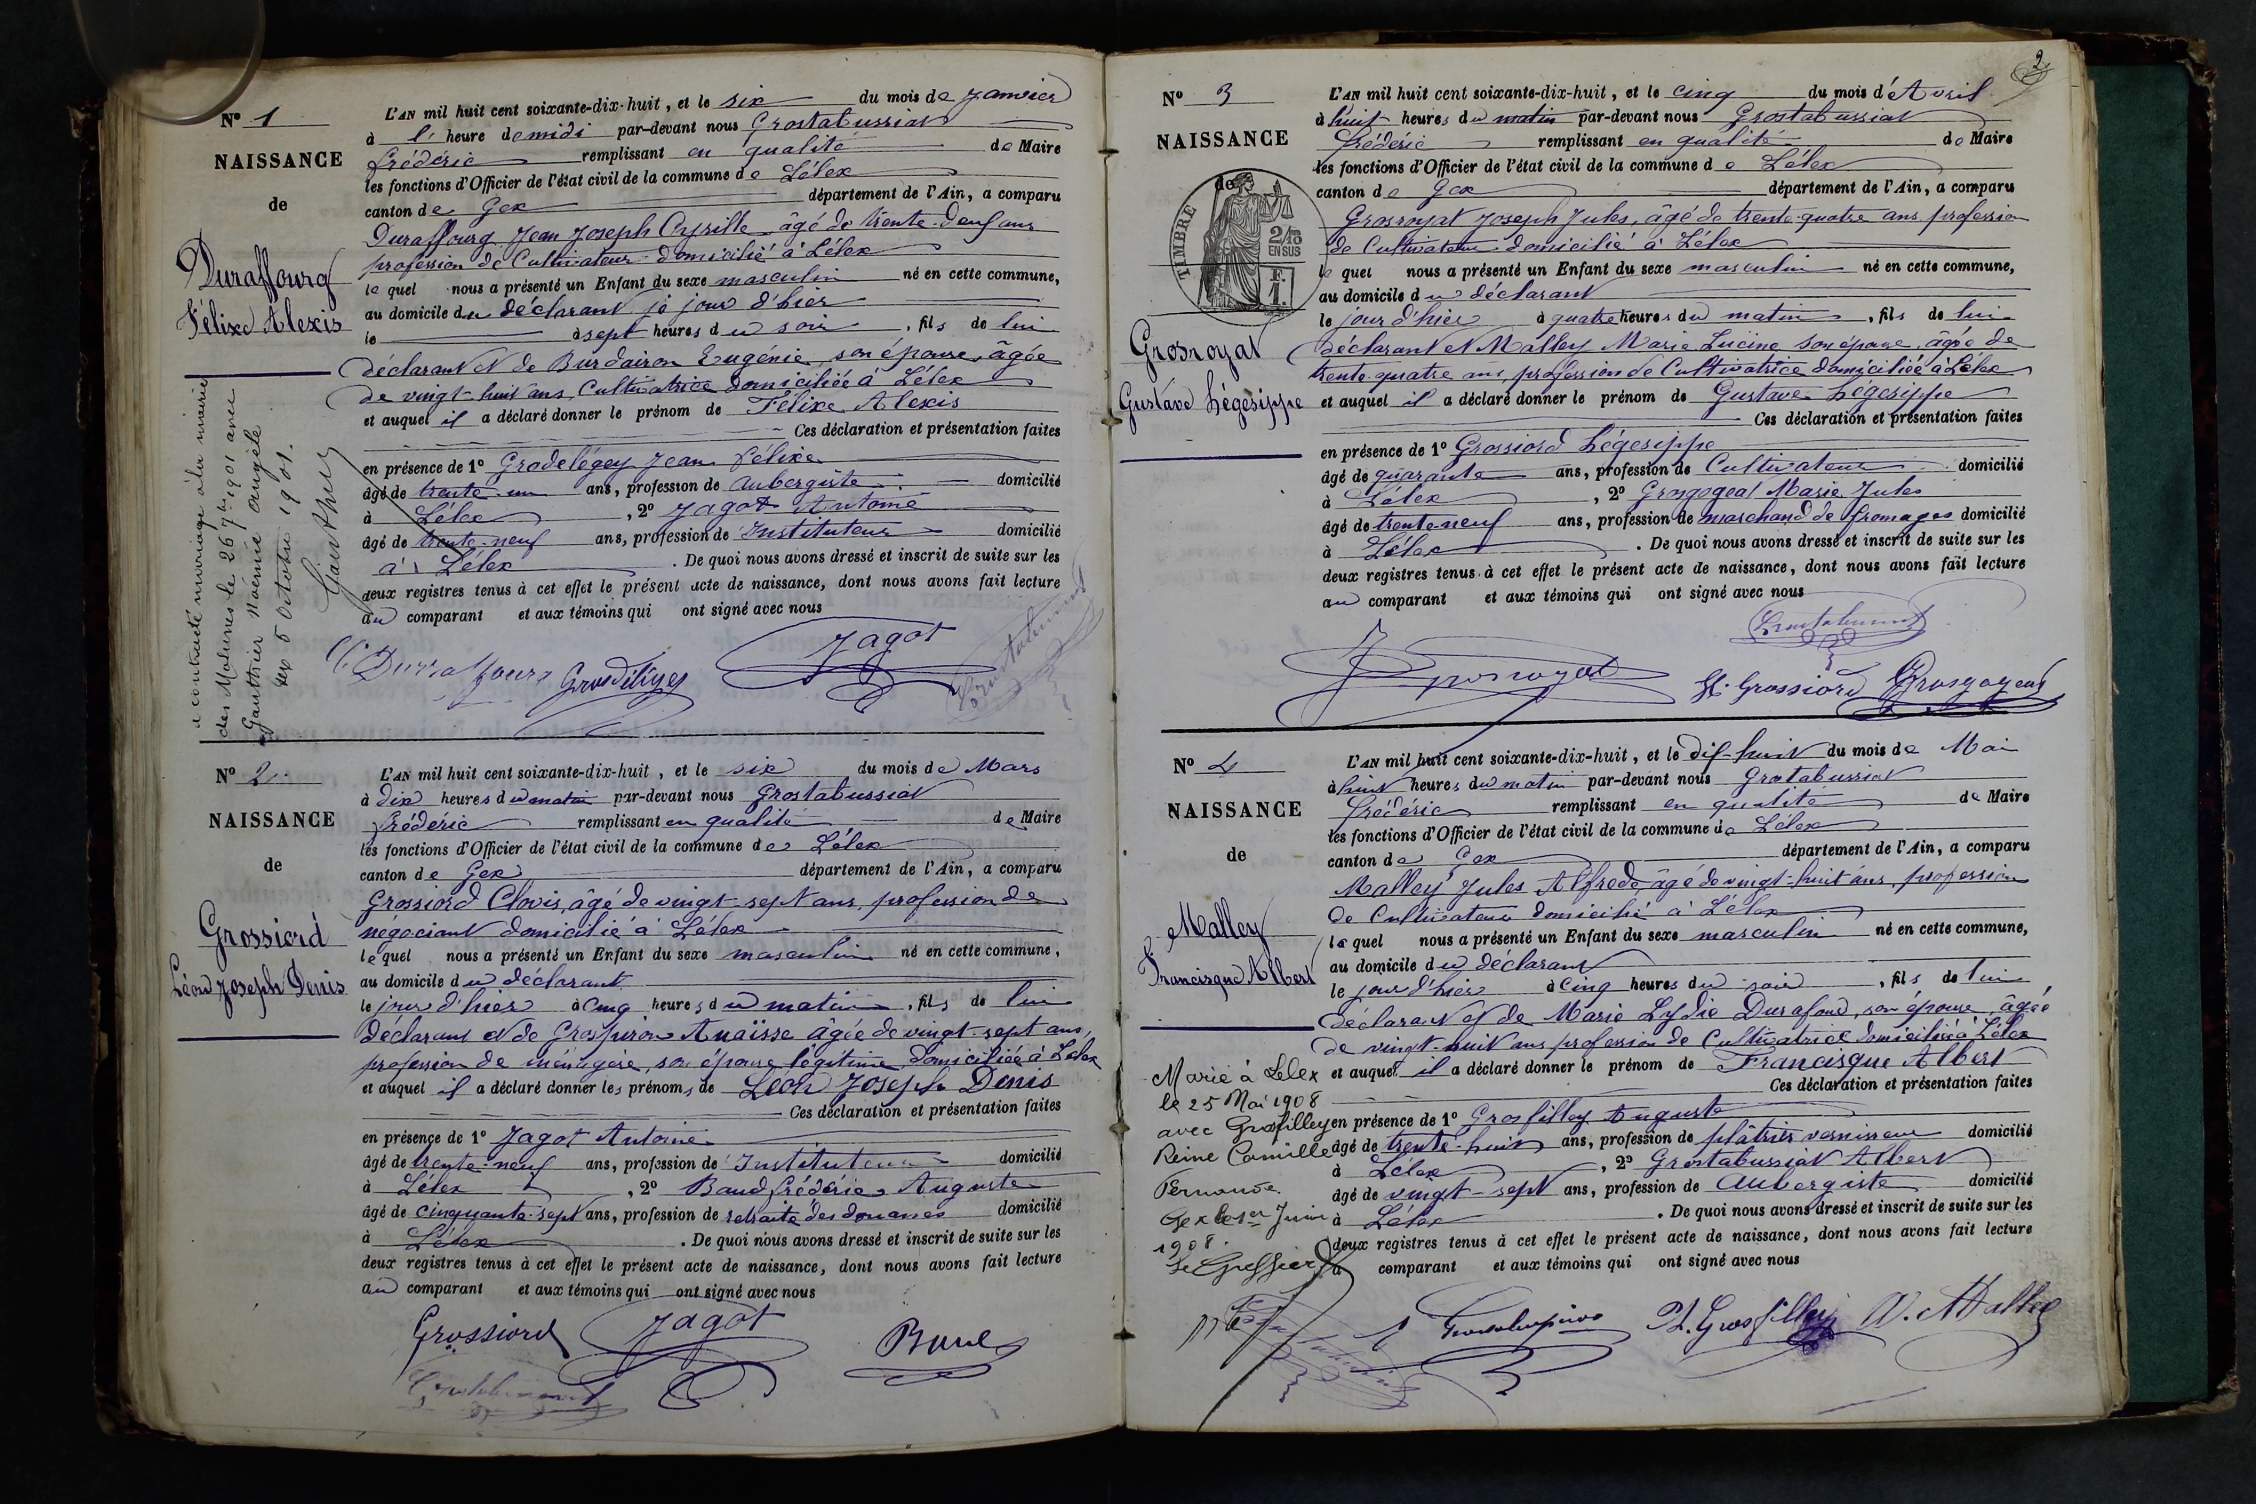 Nº 1
NAISSANCE
de
Duraffourg
Félixe Alexis
a contracté mariage à la mairie
des Molunes le 26 7bre 1901 avec
Gauthier Noémie Angèle
Gex 5 Octobre 1901.
L'AN mil huit cent soixante-dix-huit, et le six du mois de Janvier
à l' heure de midi par-devant nous Grostabussiat
Frédéric remplissant en qualité de Maire
les fonctions d'Officier de l'état civil de la commune de Lélex
canton de Gex département de l'Ain, a comparu
Duraffourg Jean Joseph Cyrille âgé de trente-deux ans
profession de Cultivateur domicilié à Lélex
lequel nous a présenté un Enfant du sexe masculin né en cette commune,
au domicile du déclarant le jour d'hier
le à sept heures du soir, fils de lui
déclarant et de Burdairon Eugénie, son épouse, âgée
de vingt-huit ans, Cultivatrice domiciliée à Lélex
et auquel il a déclaré donner le prénom de Félixe Alexis
Ces déclaration et présentation faites
en présence de 1º Grodelégey Jean Félixe
âgé de trente-un ans, profession de Aubergiste domicilié
à Lélex, 2º Jagot Antoine
âgé de trente-neuf ans, profession de Instituteur domicilié
à Lélex. De quoi nous avons dressé et inscrit de suite sur les
deux registres tenus à cet effet le présent acte de naissance, dont nous avons fait lecture
au comparant et aux témoins qui ont signé avec nous
Duraffourg Jagot
Nº 2
NAISSANCE
de
Grossiord
Léon Joseph Denis
L'AN mil huit cent soixante-dix-huit, et le six du mois de Mars
à dix heures du matin par-devant nous Grostabussiat
Frédéric remplissant en qualité de Maire
les fonctions d'Officier de l'état civil de la commune de Lélex
canton de Gex département de l'Ain, a comparu
Grossiord Clovis, âgé de vingt-sept ans, profession de
négociant domicilié à Lélex
lequel nous a présenté un Enfant du sexe masculin né en cette commune,
au domicile du déclarant
le jour d'hier à cinq heures du matin, fils de lui
déclarant et de Grospiron Anaïsse âgée de vingt-sept ans,
profession de ménagère, son épouse légitime, domiciliée à Lélex
et auquel il a déclaré donner les prénoms de Léon Joseph Denis
Ces déclaration et présentation faites
en présence de 1º Jagot Antoine
âgé de trente-neuf ans, profession de Instituteur domicilié
à Lélex, 2º Baud Frédéric Auguste
âgé de cinquante-sept ans, profession de retraité des douanes domicilié
à Lélex. De quoi nous avons dressé et inscrit de suite sur les
deux registres tenus à cet effet le présent acte de naissance, dont nous avons fait lecture
au comparant et aux témoins qui ont signé avec nous
Grossiord Jagot Baud
2
Nº 3
NAISSANCE
de
TIMBRE
2/10
EN SUS
F.
1.
Grosroyat
Gustave hégésippe
L'AN mil huit cent soixante-dix-huit, et le cinq du mois d'Avril
à huit heures du matin par-devant nous Grostabussiat
Frédéric remplissant en qualité de Maire
les fonctions d'Officier de l'état civil de la commune de Lélex
canton de Gex département de l'Ain, a comparu
Grosroyat Joseph Jules, âgé de trente-quatre ans profession
de Cultivateur domicilié à Lélex
lequel nous a présenté un Enfant du sexe masculin né en cette commune,
au domicile du déclarant
le jour d'hier à quatre heures du matin, fils de lui
déclarant et Malley Marie Lucine son épouse, âgée de
trente-quatre ans, profession de Cultivatrice domiciliée à Lélex
et auquel il a déclaré donner le prénom de Gustave hégésippe
Ces déclaration et présentation faites
en présence de 1º Grossiord hégésippe
âgé de quarante ans, profession de Cultivateur domicilié
à Lélex, 2º Grosgogeat Marie Jules
âgé de trente-neuf ans, profession de marchand de fromages domicilié
à Lélex. De quoi nous avons dressé et inscrit de suite sur les
deux registres tenus à cet effet le présent acte de naissance, dont nous avons fait lecture
au comparant et aux témoins qui ont signé avec nous
J Grosroyat H. Grossiord Grosgogeat
Nº 4
NAISSANCE
de
Malley
Francisque Albert
Marié à Lelex
le 25 Mai 1908
avec Grosfilley
Reine Camille
Fernande
Gex le 1er Juin
1908.
Le Greffier
L'AN mil huit cent soixante-dix-huit, et le dix-huit du mois de Mai
à huit heures du matin par-devant nous Grostabussiat
Frédéric remplissant en qualité de Maire
les fonctions d'Officier de l'état civil de la commune de Lélex
canton de Gex département de l'Ain, a comparu
Malley Jules Alfrede, âgé de vingt-huit ans, profession
de Cultivateur domicilié à Lélex
lequel nous a présenté un Enfant du sexe masculin né en cette commune,
au domicile du déclarant
le jour d'hier à cinq heures du soir, fils de lui
déclarant et de Marie Lydie Durafour, son épouse, âgée
de vingt-huit ans profession de Cultivatrice domiciliée à Lélex
et auquel il a déclaré donner le prénom de Francisque Albert
Ces déclaration et présentation faites
en présence de 1º Grosfilley Auguste
âgé de trente-huit ans, profession de plâtrier vernisseur domicilié
à Lélex, 2º Grostabussiat Albert
âgé de vingt-sept ans, profession de Aubergiste domicilié
à Lélex. De quoi nous avons dressé et inscrit de suite sur les
deux registres tenus à cet effet le présent acte de naissance, dont nous avons fait lecture
au comparant et aux témoins qui ont signé avec nous
Grosfilley Malley